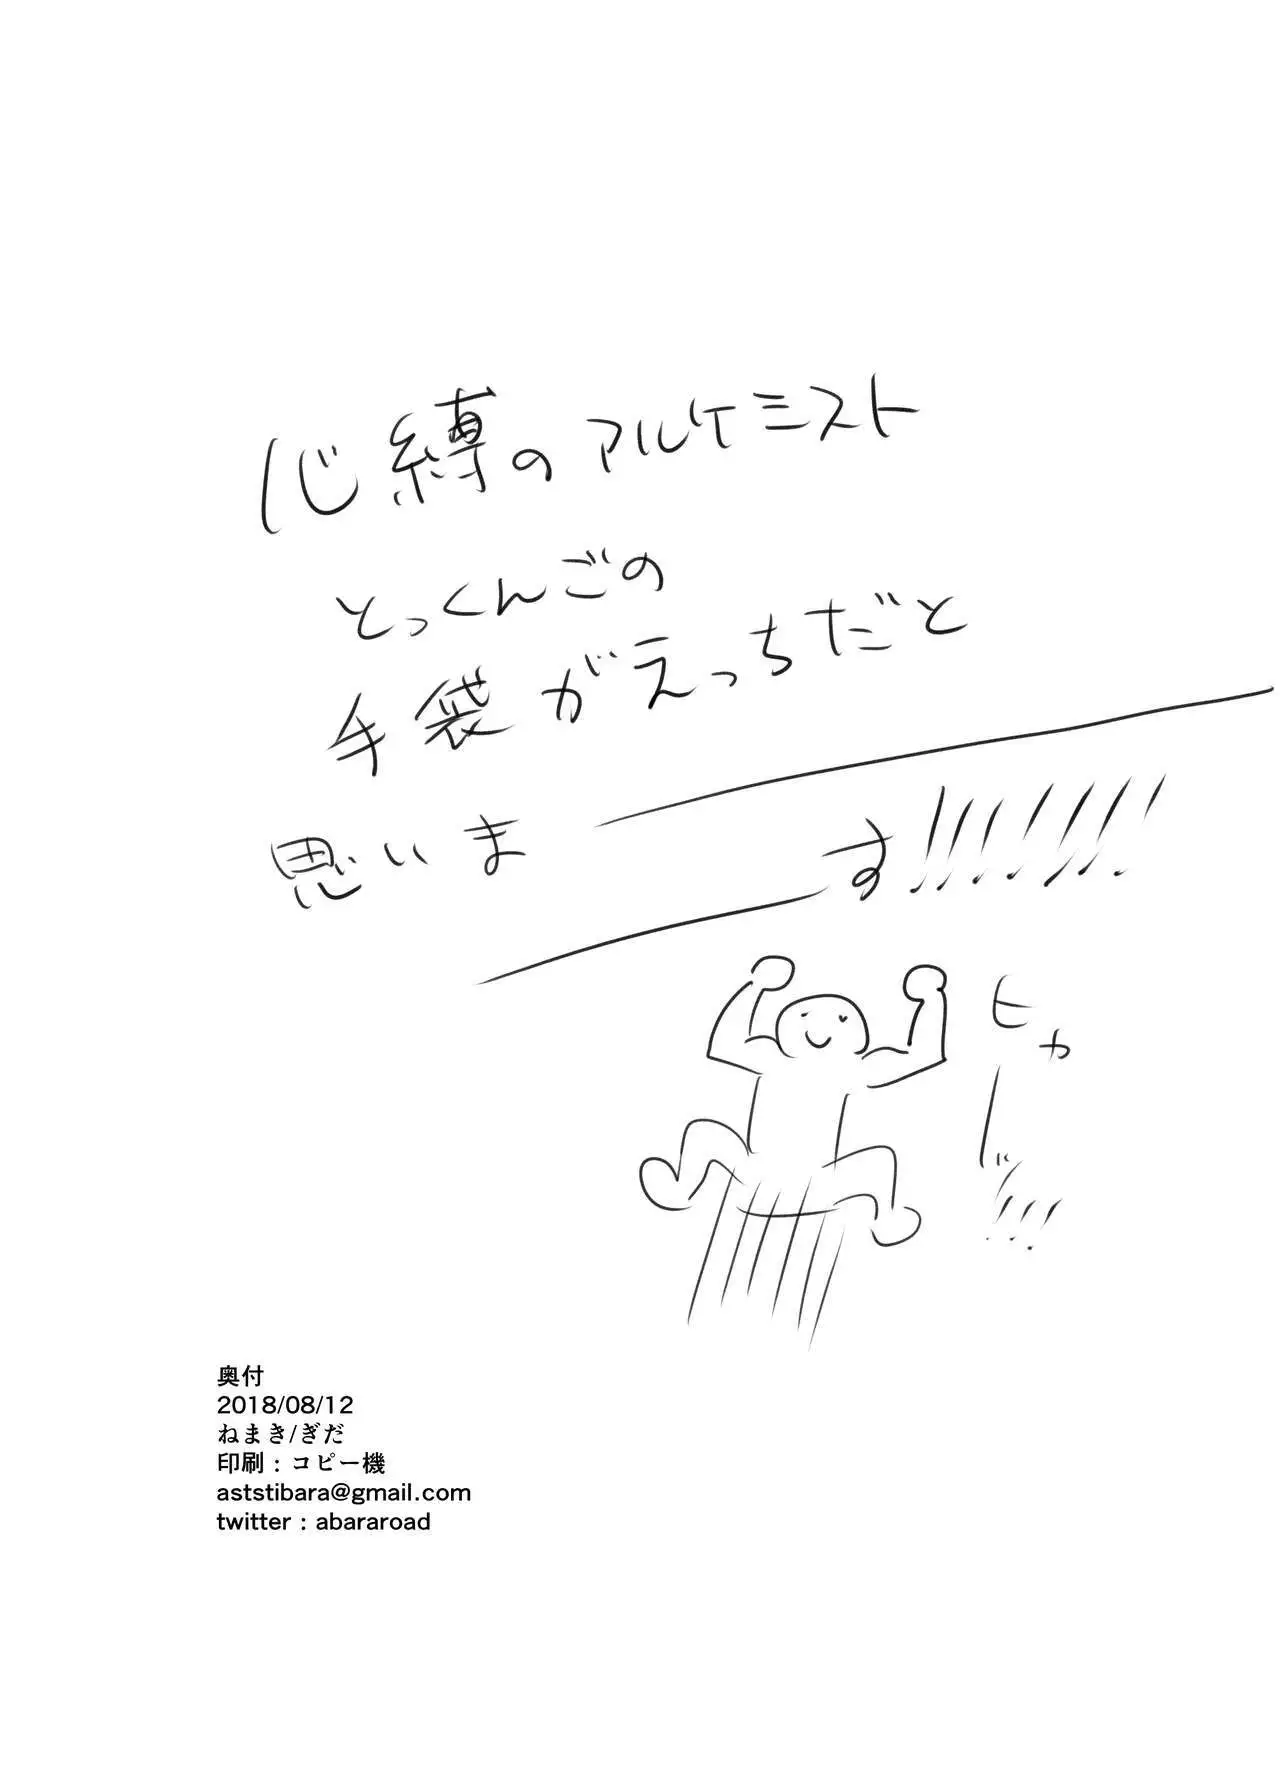 心縛のアルケミスト
とっくんごの
手袋がえっちだと
思いま
す!!!!!!!
ヒャ
ー!!!
奥付
2018/08/12
ねまき/ぎだ
印刷：コピー機
aststibara@gmail.com
twitter：abararoad